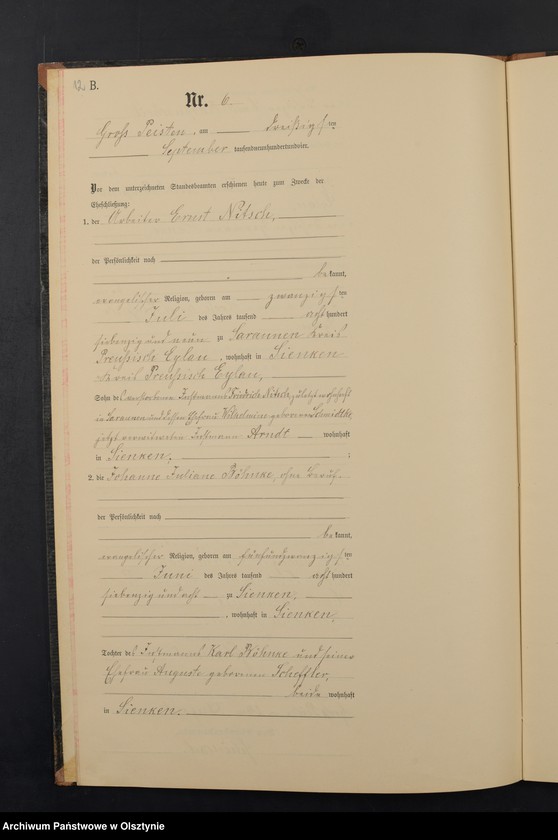 12. B.
Nr. 6.
Gross Peisten, am dreißigsten
September tausendneunhundertundvier.
Vor dem unterzeichneten Standesbeamten erschienen heute zum Zwecke der
Eheschließung:
1. der Arbeiter Ernst Nitsch,
der Persönlichkeit nach
bekannt,
evangelischer Religion, geboren am zwanzigsten
Juli des Jahres tausend achthundert
siebenzig und neun zu Saraunen Kreis
Preußisch Eylau, wohnhaft in Sienken
Kreis Preußisch Eylau,
Sohn des verstorbenen Instmanns Friedrich Nitsch, zuletzt wohnhaft
in Saraunen und dessen Ehefrau Wilhelmine geborene Schmidtke
jetzt verwitweten Instmann Arndt wohnhaft
in Sienken. ;
2. die Johanne Juliane Böhnke, ohne Beruf
der Persönlichkeit nach
bekannt,
evangelischer Religion, geboren am fünfundzwanzigsten
Juni des Jahres tausend achthundert
siebenzig und acht zu Sienken,
, wohnhaft in Sienken,
Tochter des Instmanns Karl Böhnke und seiner
Ehefrau Auguste geborenen Scheffler,
beide wohnhaft
in Sienken.
Archiwum Państwowe w Olsztynie